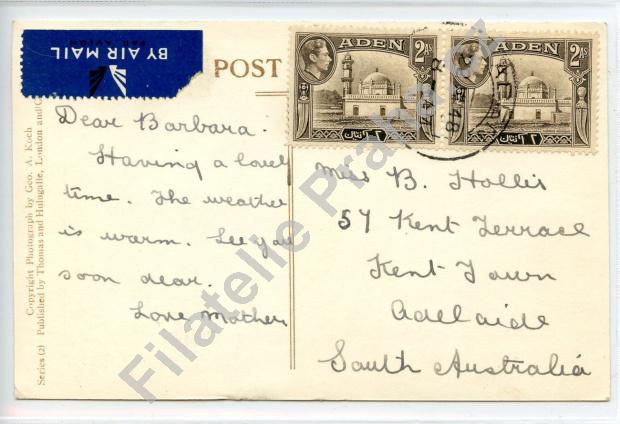 BY AIR MAIL
PAR AVION
POST
ADEN 2 AS
ADEN 2 AS
Dear Barbara.
Having a lovel
time. The weather
is warm. See you
soon dear.
Love Mother
Miss B. Hollis
57 Kent Terrace
Kent Town
Adelaide
South Australia
Copyright Photograph by Geo. A. Koch
Series (2) Published by Thomas and Hulugalle, London and C
Filatelie Praha cz